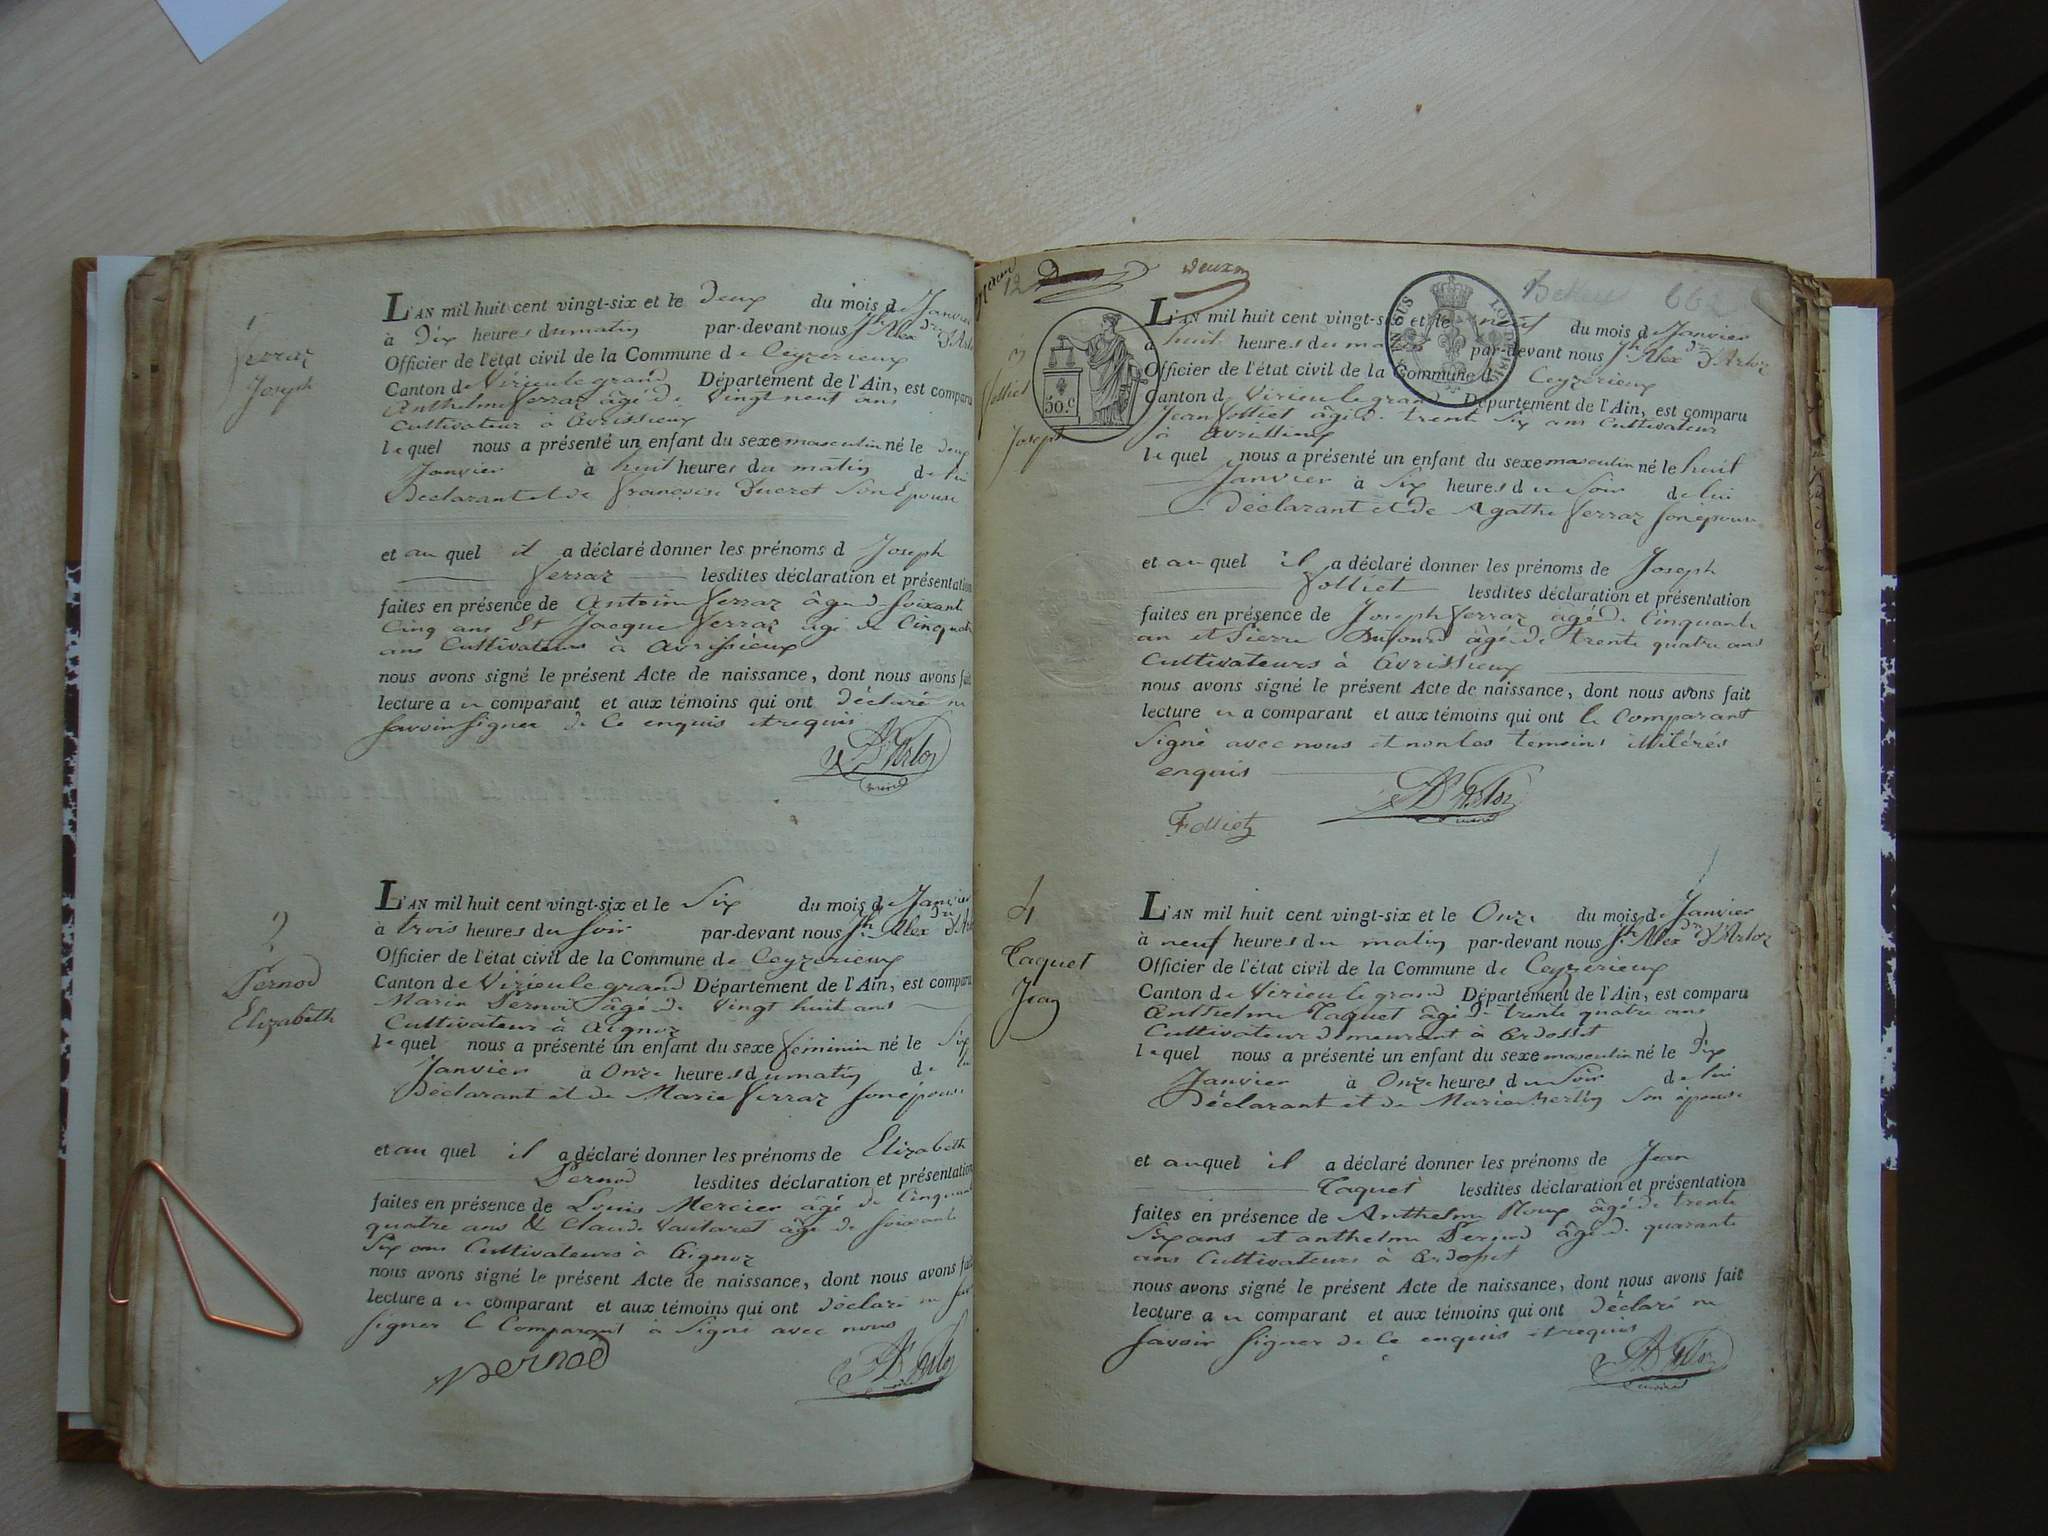 1
Ferraz
Joseph
L'AN mil huit cent vingt-six et le deux du mois de Janvier
à dix heures du matin par-devant nous Jh Alex dre D'Arloz
Officier de l'état civil de la Commune de Ceyzerieux
Canton de Virieu le grand Département de l'Ain, est comparu
Anthelme Ferraz âgé de vingt neuf ans
Cultivateur à Avrissieux
lequel nous a présenté un enfant du sexe masculin né le deux
Janvier à huit heures du matin de lui
Déclarant et de Françoise Ducret Son Epouse
et auquel il a déclaré donner les prénoms d Joseph
Ferraz lesdites déclaration et présentation
faites en présence de Antoine Ferraz âgé de Soixante
Cinq ans Et Jacque Ferraz âgé de Cinquante
ans Cultivateurs à Avrissieux
nous avons signé le présent Acte de naissance, dont nous avons fait
lecture au comparant et aux témoins qui ont Déclaré ne
Savoir Signer de Ce enquis et requis
D'Arloz
2
Pernod
Elizabeth
L'AN mil huit cent vingt-six et le Six du mois de Janvier
à trois heures du Soir par-devant nous Jh Alex dre D'Arloz
Officier de l'état civil de la Commune de Ceyzerieux
Canton de Virieu le grand Département de l'Ain, est comparu
Marin Pernod âgé de Vingt huit ans
Cultivateur à Aignoz
lequel nous a présenté un enfant du sexe féminin né le Six
Janvier à Onze heures du matin de lui
Déclarant et de Marie Ferraz Son épouse
et au quel il a déclaré donner les prénoms de Elizabeth
Pernod lesdites déclaration et présentation
faites en présence de Louis Mercier âgé de Cinquante
quatre ans & Claude Vautaret âgé de Soixante
Six ans Cultivateurs à Aignoz
nous avons signé le présent Acte de naissance, dont nous avons fait
lecture au comparant et aux témoins qui ont déclaré ne
Signer le Comparant à Signé avec nous
Pernod
D'Arloz
12 deux
662
50.c
LOI DU
3
Folliet
Joseph
L'AN mil huit cent vingt-six et le neuf du mois de Janvier
à huit heures du matin par-devant nous Jh Alex dre D'Arloz
Officier de l'état civil de la Commune d Ceyzerieux
Canton d Virieu le grand Département de l'Ain, est comparu
Jean Folliet âgé de trente Six ans Cultivateur
à Avrissieux
lequel nous a présenté un enfant du sexe masculin né le huit
Janvier à Six heures du Soir de lui
déclarant et de Agathe Ferraz Son épouse
et auquel il a déclaré donner les prénoms de Joseph
Folliet lesdites déclaration et présentation
faites en présence de Joseph Ferraz âgé de Cinquante
an et Pierre Dufour âgé de trente quatre ans
Cultivateurs à Avrissieux
nous avons signé le présent Acte de naissance, dont nous avons fait
lecture au comparant et aux témoins qui ont le Comparant
Signé avec nous et non les temoins illitérés
enquis
Folliet
D'Arloz
4
Taquet
Jean
L'AN mil huit cent vingt-six et le Onze du mois de Janvier
à neuf heures du matin par-devant nous Jh Alex dre D'Arloz
Officier de l'état civil de la Commune de Ceyzerieux
Canton de Virieu le grand Département de l'Ain, est comparu
Anthelme Taquet âgé de trente quatre ans
Cultivateur demeurant à Ardosset
lequel nous a présenté un enfant du sexe masculin né le Dix
Janvier à Onze heures du Soir de lui
Déclarant et de Marie Merlin Son épouse
et auquel il a déclaré donner les prénoms de Jean
Taquet lesdites déclaration et présentation
faites en présence de Anthelme Roux âgé de trente
Six ans et anthelme Pernod âgé de quarante
ans Cultivateurs à Ardosset
nous avons signé le présent Acte de naissance, dont nous avons fait
lecture au comparant et aux témoins qui ont Déclaré ne
Savoir Signer de Ce enquis et requis
D'Arloz